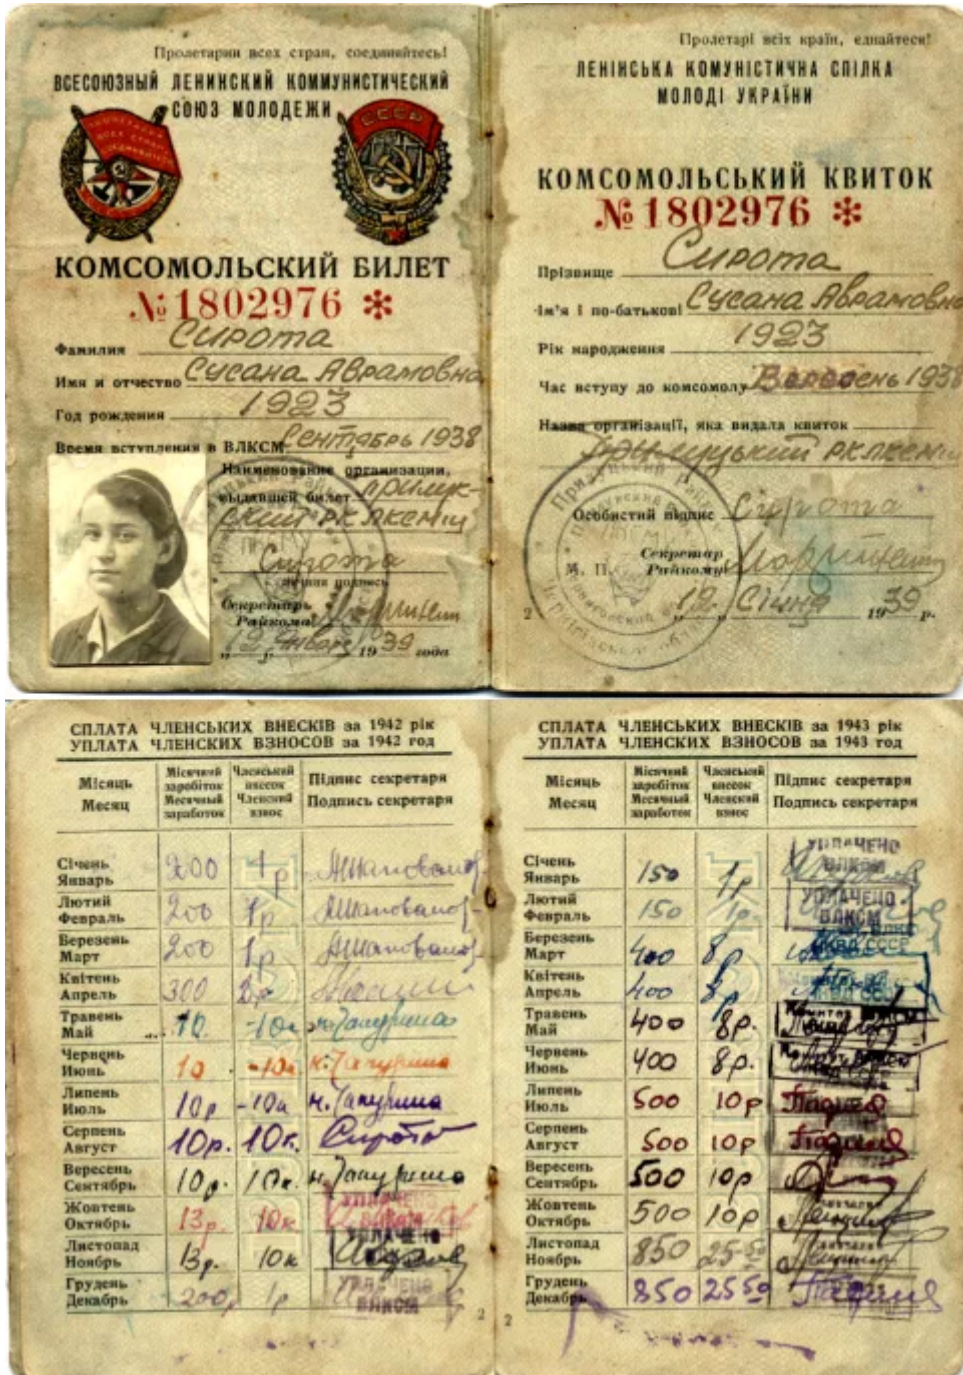 Пролетарии всех стран, соединяйтесь!
ВСЕСОЮЗНЫЙ ЛЕНИНСКИЙ КОММУНИСТИЧЕСКИЙ
СОЮЗ МОЛОДЕЖИ
СССР
КОМСОМОЛЬСКИЙ БИЛЕТ
№ 1802976 *
Фамилия Сирота
Имя и отчество Сусана Аврамовна
Год рождения 1923
Время вступления в ВЛКСМ Сентябрь 1938
Наименование организации,
выдавшей билет Прилук-
ский РК ЛКСМУ
Сирота
личная подпись
Секретарь
Райкома
„12„ января 1939 года
Пролетарі всіх країн, єднайтеся!
ЛЕНІНСЬКА КОМУНІСТИЧНА СПІЛКА
МОЛОДІ УКРАЇНИ
КОМСОМОЛЬСЬКИЙ КВИТОК
№ 1802976 *
Прізвище Сирота
Ім'я і по-батькові Сусана Аврамовна
Рік народження 1923
Час вступу до комсомолу Вересень 1938
Назва організації, яка видала квиток
Прилуцький РК ЛКСМУ
Особистий підпис Сирота
Секретар
М. П. Райкому
„12„ Січня 1939 р.
2
СПЛАТА ЧЛЕНСЬКИХ ВНЕСКІВ за 1942 рік
УПЛАТА ЧЛЕНСКИХ ВЗНОСОВ за 1942 год
Місяць Місячний заробіток Членський внесок Підпис секретаря
Месяц Месячный заработок Членский взнос Подпись секретаря
Січень
Январь 200 1р
Лютий
Февраль 200 1р
Березень
Март 200 1р
Квітень
Апрель 300 2р
Травень
Май 10. -10к
Червень
Июнь 10 -10к
Липень
Июль 10р -10к
Серпень
Август 10р. 10к. Сирота
Вересень
Сентябрь 10р. 10к.
Жовтень
Октябрь 13р. 10к УПЛАЧЕНО ВЛКСМ
Листопад
Ноябрь 13р. 10к УПЛАЧЕНО
Грудень
Декабрь 200р 1р УПЛАЧЕНО ВЛКСМ
2
СПЛАТА ЧЛЕНСЬКИХ ВНЕСКІВ за 1943 рік
УПЛАТА ЧЛЕНСКИХ ВЗНОСОВ за 1943 год
Місяць Місячний заробіток Членський внесок Підпис секретаря
Месяц Месячный заработок Членский взнос Подпись секретаря
Січень
Январь 150 1р УПЛАЧЕНО ВЛКСМ
Лютий
Февраль 150 1р. УПЛАЧЕНО ВЛКСМ
Березень
Март 400 8р
Квітень
Апрель 400 8р
Травень
Май 400 8р.
Червень
Июнь 400 8р.
Липень
Июль 500 10р
Серпень
Август 500 10р
Вересень
Сентябрь 500 10р
Жовтень
Октябрь 500 10р
Листопад
Ноябрь 850 25-50
Грудень
Декабрь 850 25 50
2